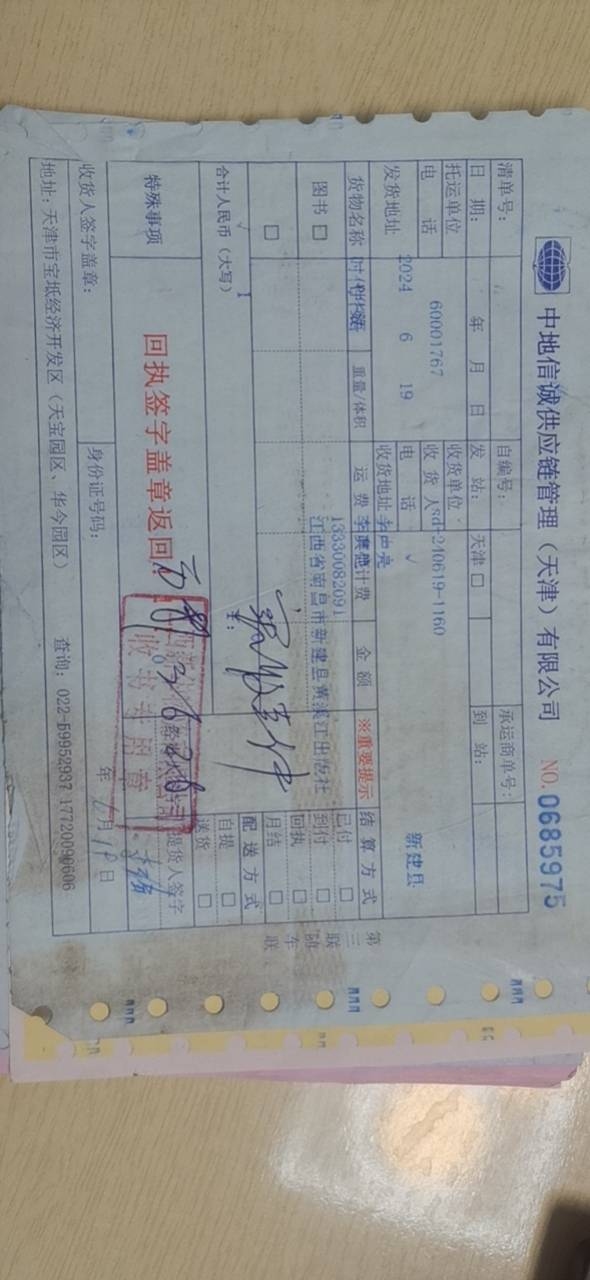 中地信诚供应链管理（天津）有限公司 NO. 0685975
清单号： 自编号： 承运商单号：
日 期： 年 月 日 发 站： 天津 □ 到 站：
托运单位 收货单位
电 话 60001767 收 货 人 sd-240619-1160 新建县
2024 6 19 电 话
发货地址 收货地址
货物名称 重量/体积 运 费 计费 金 额 ※重要提示 结 算 方 式
13330082091
江西省南昌市新建县黄溪江出版社
图书 □ 已付 □
到付 □
回执 □
□ 月结 □
配 送 方 式
合计人民币（大写） ￥： 自提 □
送货 □
特殊事项 回执签字盖章返回 提货人签字
收书专用章
收货人签字盖章： 身份证号码： 年 月 日
地址：天津市宝坻经济开发区（天宝园区、华今园区） 查询：022-59952937 17720090606
第三联 随车联